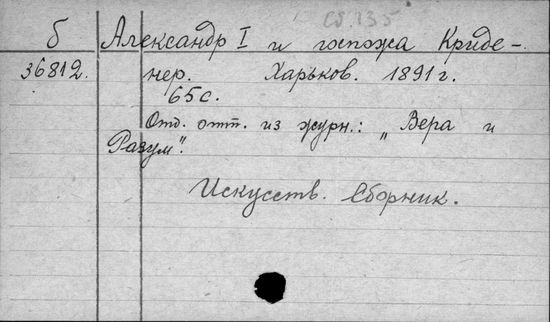 Сб 135
б Александр I и госпожа Криде-
36812. нер. Харьков. 1891 г.
65 с.
Отд. отт. из журн.: „Вера и
Разум".
Искусств. Сборник.